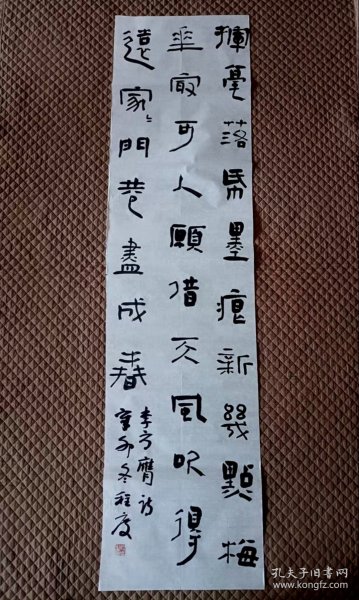 揮毫落帋墨痕新幾點梅
華寂可人願借天風吹得
遠家〻門巷盡成春
李方膺詩
辛卯冬程度
孔夫子旧书网
kongfz.com